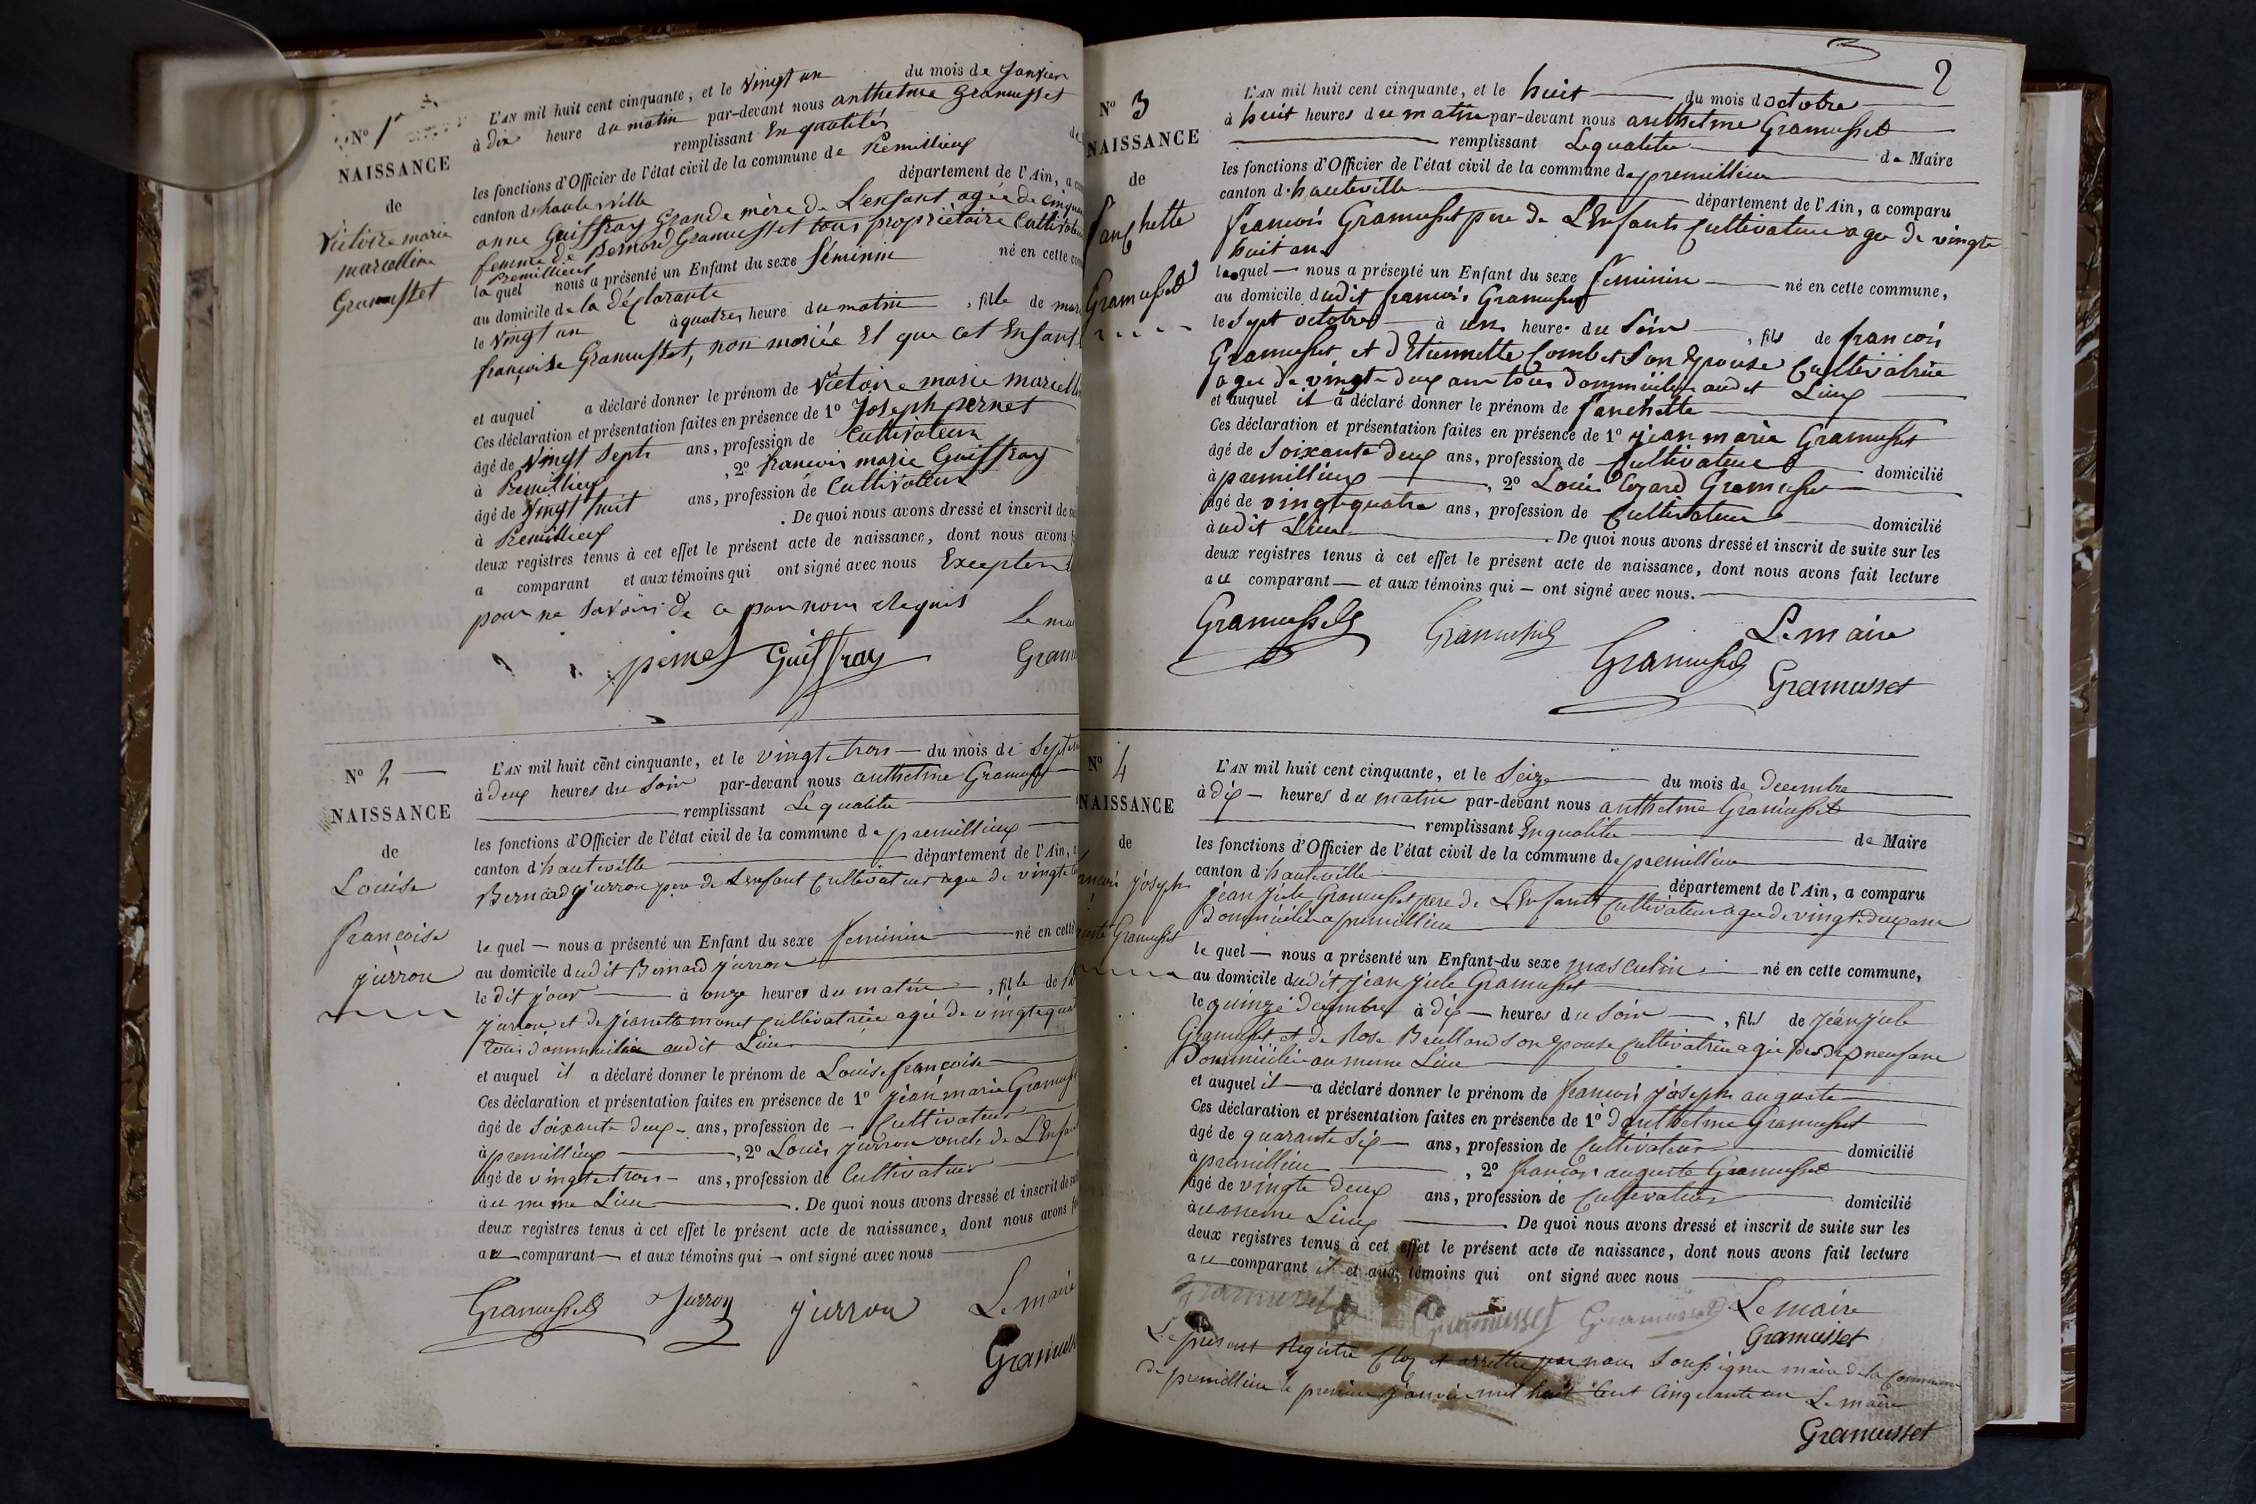 N° 1er
NAISSANCE
de
Victoire marie
marcelline
Gramusset
L'AN mil huit cent cinquante, et le vingt un du mois de Janvier
à dix heure du matin par-devant nous anthelme Gramusset
remplissant En qualités
les fonctions d'Officier de l'état civil de la commune de Premillieux
canton d'hauteville département de l'Ain, a
anne Guiffray Grande mère de L'enfant agée de
femme de Bernard Gramusset tous propriétaire Cultivateurs
Premillieux
la quel nous a présenté un Enfant du sexe féminin né en cette
au domicile de la déclarante
le vingt un à quatres heure du matin, fille de
françoise Gramusset, non mariée Et que cet Enfant
et auquel a déclaré donner le prénom de Victoire marie
Ces déclaration et présentation faites en présence de 1° Joseph pernet
âgé de vingt Septs ans, profession de Cultivateur
à Premillieux, 2° francois marie Guiffray
âgé de vingt huit ans, profession de Cultivateur
à Premillieux. De quoi nous avons dressé et inscrit de
deux registres tenus à cet effet le présent acte de naissance, dont nous avons
a comparant et aux témoins qui ont signé avec nous Excepter
pour ne savoir de ce par nous Requis
pernet Guiffray
N° 2
NAISSANCE
de
Louise
françoise
jurron
L'AN mil huit cent cinquante, et le vingt trois du mois de
à deux heures du soir par-devant nous anthelme Gramusset
remplissant Le qualite
les fonctions d'Officier de l'état civil de la commune de premillieux
canton d'hauteville département de l'Ain,
Bernard jurron pere de Lenfant Cultivateur agé de vingt
le quel nous a présenté un Enfant du sexe feminin né en cette
au domicile dudit Bernard jurron
le dit jour à onze heures du matin, fille de
jurron et de jeanette monet Cultivatrice agée de vingt
tous dommicilié audit Lieu
et auquel il a déclaré donner le prénom de Louise françoise
Ces déclaration et présentation faites en présence de 1° jean marie
âgé de soixante deux ans, profession de Cultivateur
à premillieux, 2° Louis jurron oncle de
âgé de vingt trois ans, profession de Cultivateur
au meme Lieu. De quoi nous avons dressé et inscrit de
deux registres tenus à cet effet le présent acte de naissance, dont nous avons
au comparant et aux témoins qui ont signé avec nous
Gramusset Jurron jurron Le maire
2
N° 3
NAISSANCE
de
fanchette
Gramusset
L'AN mil huit cent cinquante, et le huit du mois doctobre
à huit heures du matin par-devant nous anthelme Gramusset
remplissant Le qualite de Maire
les fonctions d'Officier de l'état civil de la commune de premillieu
canton d'hauteville département de l'Ain, a comparu
francois Gramusset pere de L'Enfant Cultivateur agé de vingt
huit an
lequel nous a présenté un Enfant du sexe feminin né en cette commune,
au domicile dudit francois Gramusset
le sept octobre à un heure du soir, fils de francois
Gramusset et d'Etiennette Combet son Epouse Cultivatrice
agée de vingt deux ans tous dommicilié audit Lieux
et auquel il a déclaré donner le prénom de fanchette
Ces déclaration et présentation faites en présence de 1° jean marie Gramusset
âgé de soixante deux ans, profession de Cultivateur domicilié
à premillieux, 2° Louis Gramusset
âgé de vingt quatre ans, profession de Cultivateur domicilié
audit Lieu. De quoi nous avons dressé et inscrit de suite sur les
deux registres tenus à cet effet le présent acte de naissance, dont nous avons fait lecture
au comparant et aux témoins qui ont signé avec nous.
Gramusset Gramusset Gramusset Le maire
Gramusset
N° 4
NAISSANCE
de
joseph
Gramusset
L'AN mil huit cent cinquante, et le seize du mois de decembre
à dix heures du matin par-devant nous anthelme Gramusset
remplissant En qualite de Maire
les fonctions d'Officier de l'état civil de la commune de premillieu
canton d'hauteville département de l'Ain, a comparu
jean jule Gramusset pere de L'Enfant Cultivateur agé de vingt deux ans
dommicilié a premillieu
le quel nous a présenté un Enfant du sexe masculin né en cette commune,
au domicile dudit jean jule Gramusset
le quinze decembre à dix heures du soir, fils de jean jule
Gramusset et de Rose son Epouse Cultivatrice agée de dix neuf ans
Dommicilié au meme Lieu
et auquel il a déclaré donner le prénom de francois joseph auguste
Ces déclaration et présentation faites en présence de 1° anthelme Gramusset
âgé de quarante six ans, profession de Cultivateur domicilié
à premillieu, 2° francois auguste Gramusset
âgé de vingt deux ans, profession de Cultivateur domicilié
au meme Lieux. De quoi nous avons dressé et inscrit de suite sur les
deux registres tenus à cet effet le présent acte de naissance, dont nous avons fait lecture
au comparant et aux témoins qui ont signé avec nous
Gramusset Gramusset Gramusset Le maire
Gramusset
Le present Registre Clos et arrettee par nous soussigner maire de la Commune
de premillieu le premier janvier mil huit cent cinquante un Le maire
Gramusset